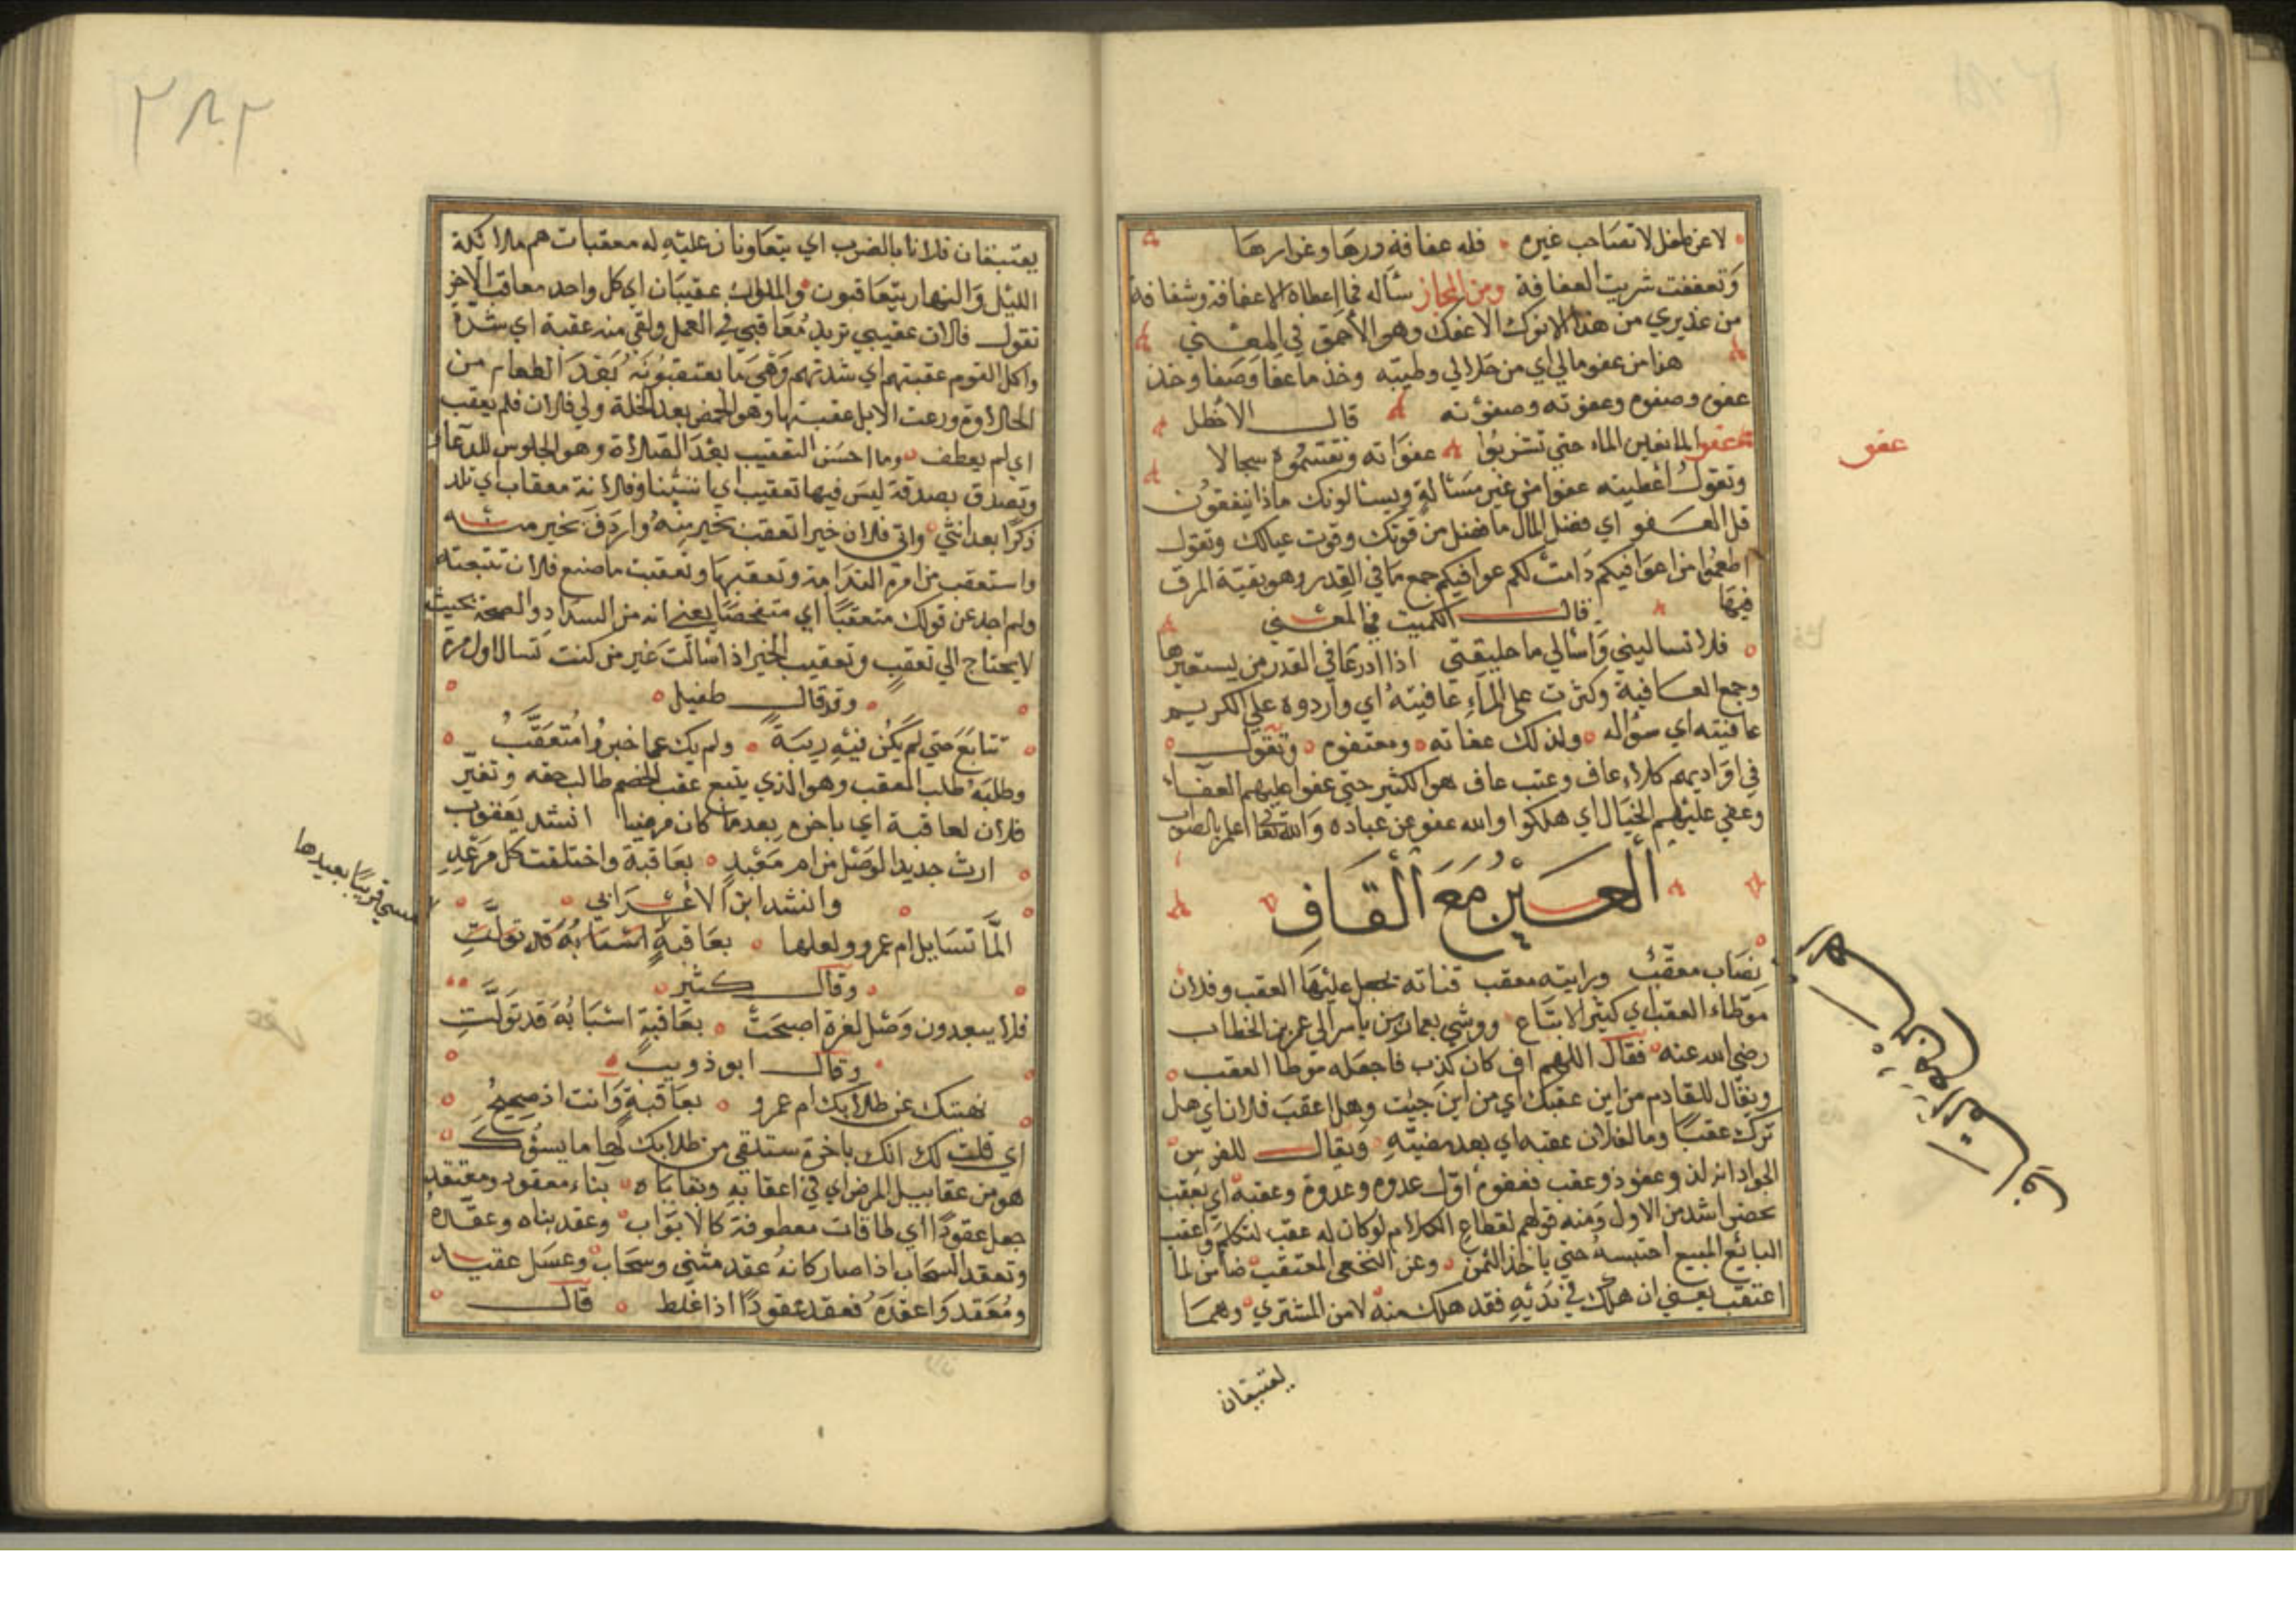 لاعن طفل لا تصاحب غيره فله عفافة ورها وغزارها
وتعففت شربت العفافة ومن المجاز سأله فما اعطاه الا عفافة وشفافة
من عذيري من هذا الانوك الاعفك وهو الأحمق في المعنى
هذا من عفو مالي اي من حلالي وطيبه وخذ ما عفا وصفا وخذ
عفوه وصفوه وعفوته وصفوته قال الأخطل
المانعين الماء حتى تشربوا عفواته وتقتسموه سجالا
عفو
وتقول أعطيته عفوا من غير مسألة ويسئالونك ماذا ينفقون
قل العفو اي فضل المال ما فضل من قوتك وقوت عيالك وتقول
اطعموا من اعوافيكم دامت لكم عوافيكم جمع ما في القدر وهو بقية المرق
فيها قال الكميت في المعنى
فلا تساليني واسالي ما خليقتي اذا رد عافي القدر من يستعيرها
وجمع العافية وكثرت على الماء عافيته اي وارده وعلى الكريم
عافيته اي سؤاله ولذلك عفاته ومعتفوه وتقول
في اواديهم كلاء عاف وعتب عاف هو الكثير حتى عفوا عليهم العفاء
وعفي عليهم الخيال اي هلكوا والله عفو عن عباده والله تعالى اعلم بالصواب
العين مع القاف
نصاب معقب ورايته معقب قناته يجعل عليها العقب وفلان
موطاء العقب اي كثير الاتباع ووشي بعمار بن ياسر الى عمر بن الخطاب
رضي الله عنه فقال اللهم ان كان كذب فاجعله موطا العقب
ويقال للقادم من اين عقبك اي من اين جيت وهل اعقب فلان اي هل
ترك عقبا وما لفلان عقبه اي بعد مضيته ويقال للفرس
الجواد انه لذو عفو وذو عقب فعفوه أول عدوه وعدوة وعقبه اي يعقب
بحضر اشد من الاول ومنه قولهم لقطاع الكلام لو كان له عقب لتكلم واعقب
البائع المبيع احتبسه حتى ياخذ الثمن وعن النخعي المعتقب ضامن لما
اعتقب يعني ان هلك في يديه فقد هلك منه لا من المشتري وهما
يعتقبان
يعتقبان فلانا بالضرب اي يتعاونان عليه له معقبات هم ملائكة
الليل والنهار يتعاقبون والملوان عقيبان اي كل واحد معاقب الاخر
تقول فلان عقيبي تريد معاقبي في العمل ولقي منه عقبة اي شدة
واكل القوم عقبتهم اي شدتهم وهي ما يعتقبونه بعد الطعام من
الحلاوة ورعت الابل عقبتها وهو الحمض بعد الخلة ولي فلان فلم يعقب
اي لم يعطف وما احسن التعقيب بعد الصلاة وهو الجلوس للدعاء
وتصدق بصدقة ليس فيها تعقيب اي استثنا وفلانة معقاب اي تلد
ذكرا بعد انثى واتى فلان خيرا تعقب بخير منه واردف بخير منه
واستعقب من امره الندامة وتعقبها وتعقبت ما صنع فلان تتبعته
ولم اجد عن قولك متعقبا اي متفحصا يعني انه من السداد والصحة بحيث
لا يحتاج الى تعقب وتعقيب الخبر اذا سالت غير من كنت تسال اول مرة
وقد قال طفيل
تتابع حتى لم يكن فيه ريبة ولم يك عما خبروا متعقب
وطلبه طلب المعقب وهو الذي يتبع عقب الخصم طالب حقه وتغير
فلان لعاقبة اي باخره بعد ما كان مرضيا انشد يعقوب
ارث جديد الوصل من ام معبد بعاقبة واختلفت كل مرغد
وانشد ابن الاعرابي
الما تسايل ام عمرو ولعلها بعاقبة
وقال كثير
فلا يبعدون وصل لعزة اصبحت بعاقبة اسبابه قد تولت
وقال ابو ذويب
نهيتك عن طلابك ام عمرو بعاقبة وانت اذ صحيح
اي قلت لك انك باخرة ستلقى من طلابك لها ما يسؤك
هو من عقابيل المرض اي في اعقابه وبقاياه بناء معقود ومعتقد
جعل عقودا اي طاقات معطوفة كالابواب وعقد بناه وعقده
وتعقد السحاب اذا صار كانه عقد مثنى وسحاب وعسل عقيد
ومعقد واعقده فعقد عقودا اذا غلظ قال